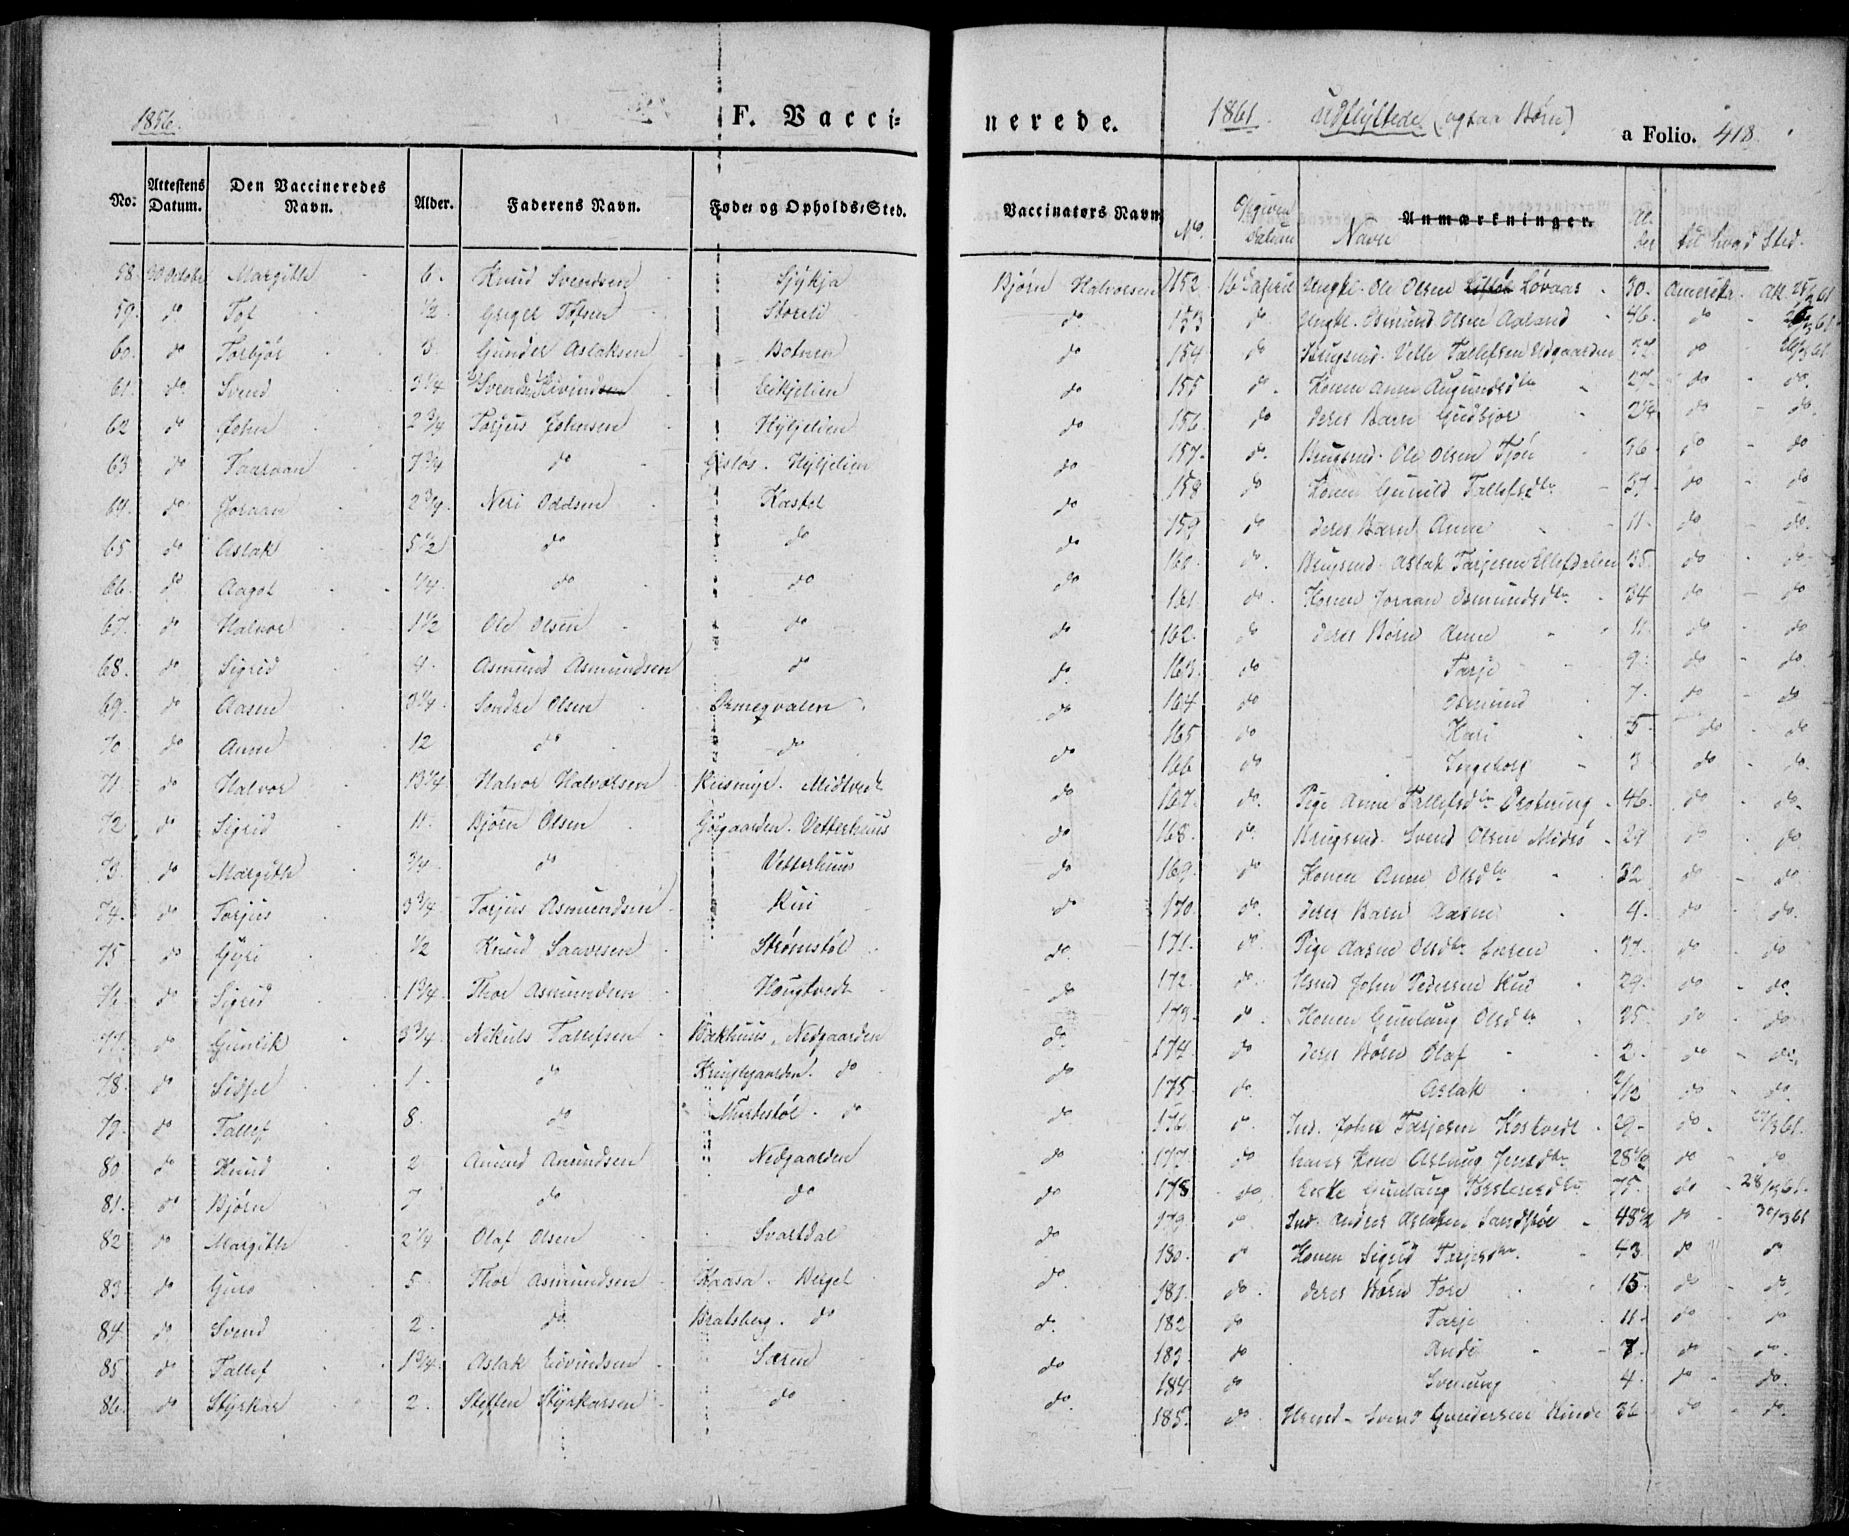 1856.
F. Vacci-
No.
Attestens Datum.
Den Vaccineredes Navn.
Alder.
Faderens Navn.
Føde- og Opholds-Sted.
58. 30 October Margith 6. Knud Svendsen
59. do Tof 1/2 Greger Tofsen Storeli
60. do Torbjør Gunder Aslaksen Botnen
61. do Svend 3 1/4 Eikjelien
62 do John 2 3/4 Torjus Johnsen Hyljelien
63 do Taaraan 7 3/4 do Hyljelien
64. do Joraan 2 3/4 Neri Oddsen Kastet
65 do Aslak 5 1/2 do do
66. do Aagot 1/4 do do
67. do Halvor 1 1/2 Ole Olsen do
68. do Sigrid 4 Asmund Asmundsen do
69. do Aasne 3 1/4 Sondre Olsen
70 do Anne 12 do do
71 do Halvor 13 1/4 Halvor Halvorsen Riismyr. Midtvedt
72. do Sigrid 11 Bjørn Olsen Vetterhuus
73. do Margith 3/4 do Vetterhuus
74. do Torjus 3 3/4 Torjus Asmundsen Rui
75 do Gyri 1/2 Knud Saavesen Strømstøl
76 do Sigrid 1 3/4 Thor Asmundsen Haugtvedt
77. do Gunlik 3 3/4 Nikuls Tallefsen Bakhuus, Nedgaarden
78. do Sissel 1. do do
79. do Tallef 8. do do
80 do Knud 2 Amund Amundsen Nedgaarden
81. do Bjørn 7 do do
82 do Margith 2 1/4 Olaf Olsen Svartdal
83. do Guro 5. Thor Asmundsen Haasa. Bergel
84. do Svend 2. do Bratsberg. do
85. do Tallef 1 3/4 Aslak Eivindsen Særen
86. do Styrkar 2. Steffen Styrkarsen do
nerede.
1861. udflyttede (ogsaa Børn)
a Folio. 418.
Vaccinators Navn
No.
Opgiven Datum
Anmærkninger.
Navn
Al-der
til hvad Sted.
Bjørn Halvorsen 152. 16 April Ungk. Ole Olsen Løvaas 30. Amerika. Att. 25/3 61
do 153 do Ungk. Osmund Olsen Aaland 46. do
do 154 do Brugsmd. Tallefsen Udgaarden 32 do 26/3 61
do 155 do. Konen Anne Augundsdtr 27. do do.
do 156. do deres Barn Gudbjør 2 1/4 do do.
do 157. do. Brugsmd. Ole Olsen 36. do do
do 158 do Konen Gunild Tallefsdtr 37. do do
do 159 do deres Barn Anne 11. do do.
do 160. do. Brugsmd. Aslak Tarjesen Ellefsdalen 35. do do
161. do. Konen Joraan Osmundsdtr 34 do do
do 162. do deres Børn Anne 11. do do
do 163. do Tarje 9. do do
do 164 do Osmund 7. do do
165 do Kari 5. do do
do 166 do Ingeborg 3 do do.
do 167. do. Pige Anne Tallefsdtr 46. do do
do 168. do Brugsmd. Svend Olsen Midbø 29 do do
do 169. do Konen Anne Olsdtr 32 do do.
do 170. do. deres Barn Aasne 4. do do.
do. 171. do. Pige Aasne Olsdtr 37. do do
do 172. do. Husmd John Pedersen Rui 29. do do.
173. do Konen Gunlaug Olsdtr 35 do do
do. 174. do deres Børn Olaf 2. do do.
do 175. do. Aslak 2/12 do do.
do 176. do. Ind. John Tarjesen Kostvedt 29. do.
do 177. do hans Kone Aslaug Jensdtr 28 1/2 do do
do 178 do Enke Gunlaug 75. do 28/3 61.
179. do Ind. Anders Aslaksen Sandstøl 48 1/2 do
do 180. do Konen Sigrid Tarjesdtr 43. do do
do. 181. do. deres Børn Tore 15. do do.
do. 182 do Tarje 11. do do
do 183. do Andr 7. do do.
184. do Svenung 4. do do.
do. 185. do Husmd Svend Gundersen 32 do do.